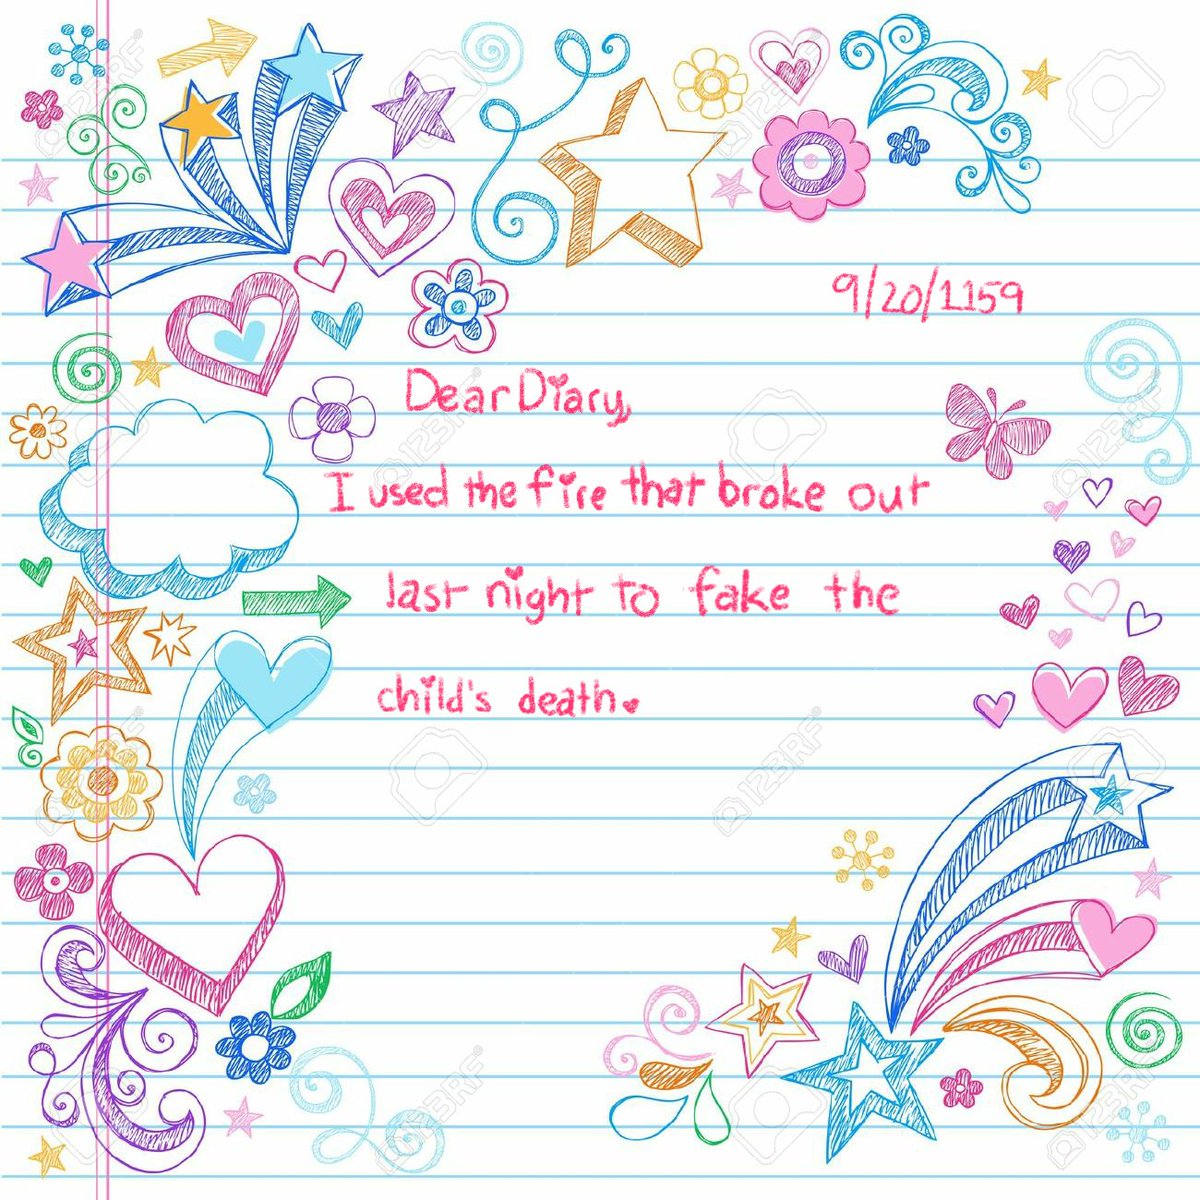 9/20/1159
Dear Diary,
I used the fire that broke out
last night to fake the
child's death.
123RF